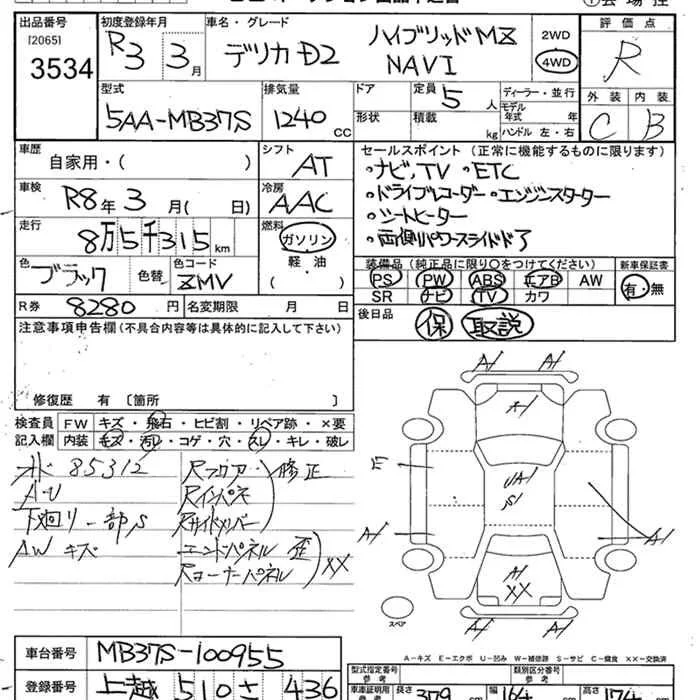 出品番号
[2065]
3534
初度登録年月
R3 3月
車名・グレード
デリカD2 ハイブリッドMZ
NAVI
2WD
4WD
評価点
R
外装 内装
C B
型式
5AA-MB37S
排気量
1240 cc
ドア
形状
定員 5 人
積載 kg
ディーラー・並行
モデル年式 年
ハンドル 左・右
車歴
自家用・( )
シフト
AT
車検
R8年3月( 日)
冷房
AAC
走行
8万5千315 km
燃料
ガソリン
軽・油
( )
色
ブラック
色替
色コード
ZMV
R券 8280 円
名変期限 月 日
セールスポイント(正常に機能するものに限ります)
・ナビ,TV ・ETC
・ドライブレコーダー・エンジンスターター
・シートヒーター
・両側パワースライドドア
装備品(純正品に限り○をつけてください)
PS PW ABS エアB AW
SR ナビ TV カワ
新車保証書
有・無
後日品
保 取説
注意事項申告欄(不具合内容等は具体的に記入して下さい)
修復歴 有 〔箇所 〕
検査員記入欄
FW キズ・飛石・ヒビ割・リペア跡・×要
内装 キズ・汚レ・コゲ・穴・スレ・キレ・破レ
85312
A・U
下廻り一部S
AW キズ
Rフロア
Rインパネ
Rサイドメンバー
修正
エンドパネル 歪
Rコーナーパネル
XX
A1 A1
A1
E
UA1
S1
A1 A1
A1
XX
A1 A1
スペア
A-キズ E-エクボ U-凹み W-補修跡 S-サビ C-腐食 XX-交換済
車台番号 MB37S-100955
登録番号 上越 510 さ 436
型式指定番号
参考
類別区分番号
参考
車庫証明用
参考
長さ 379 cm
幅 164 cm
高さ 174 cm